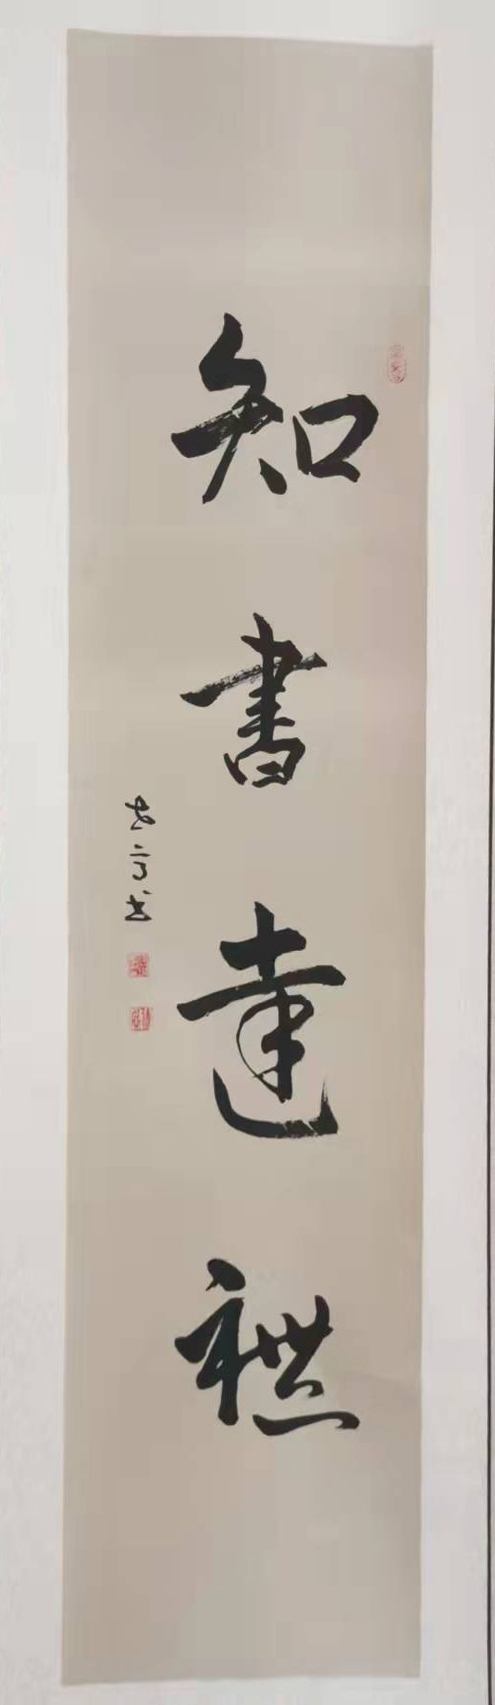 知書達禮